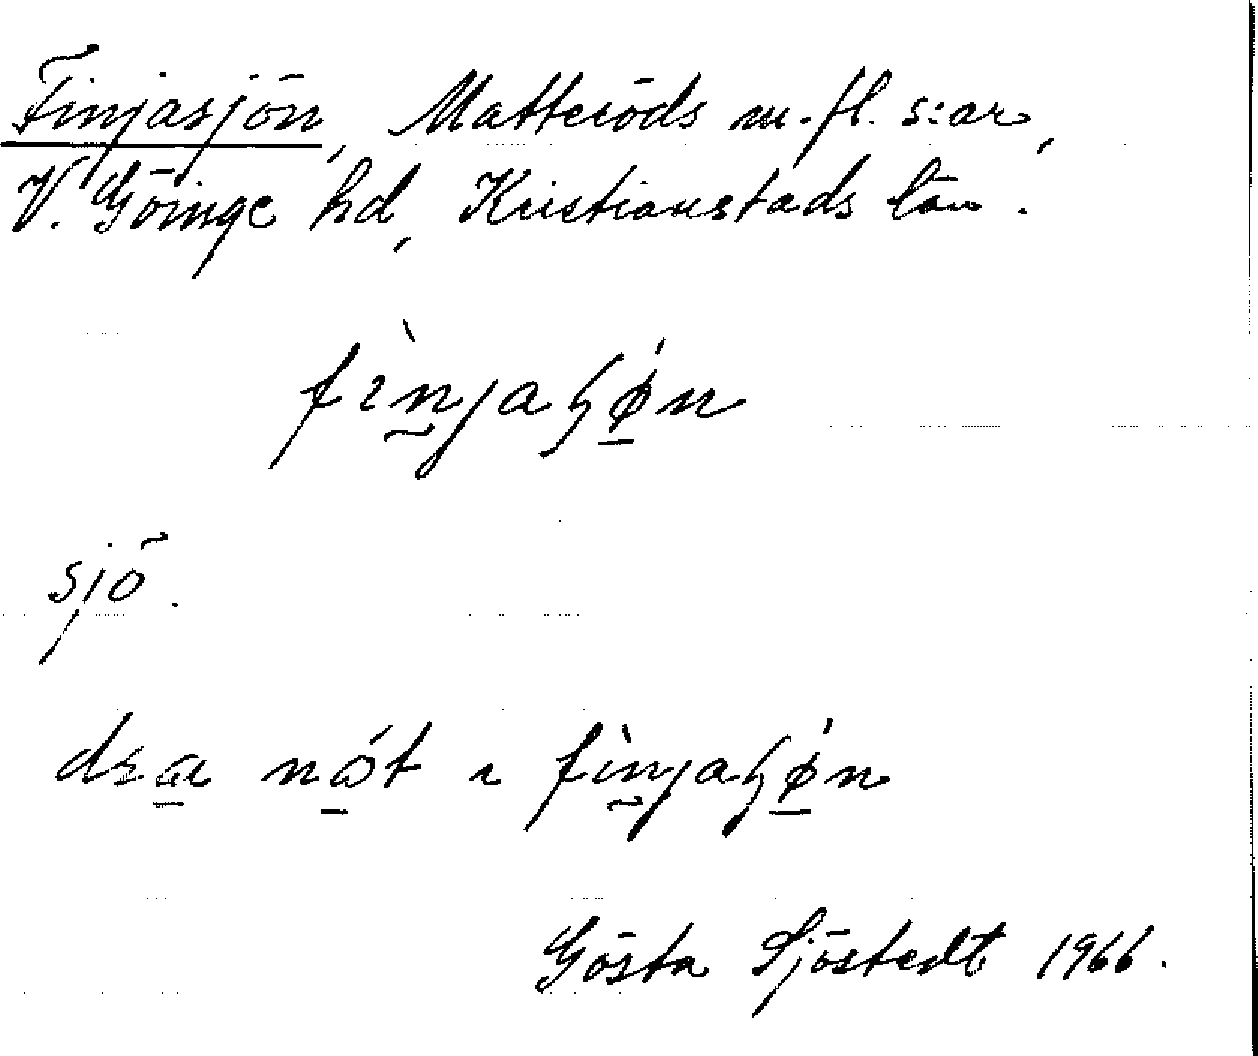 Finjasjön, Matteröds m. fl. s:ar,
V. Göinge hd, Kristianstads län.
fìnjaʃǿn
sjö.
dra nót ı fìnjaʃǿn
Gösta Sjöstedt 1966.